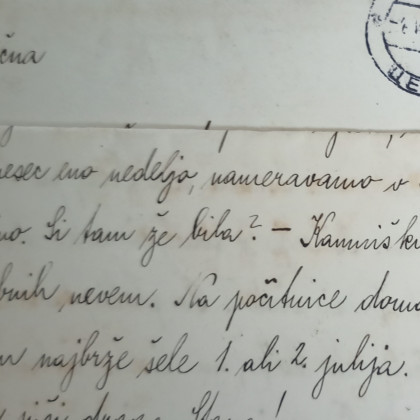 čna
mesec eno nedeljo, nameravamo v
mo. Si tam že bila? – Kamniški
bnih nevem. Na počitnice doma
m najbrže šele 1. ali 2. julija.